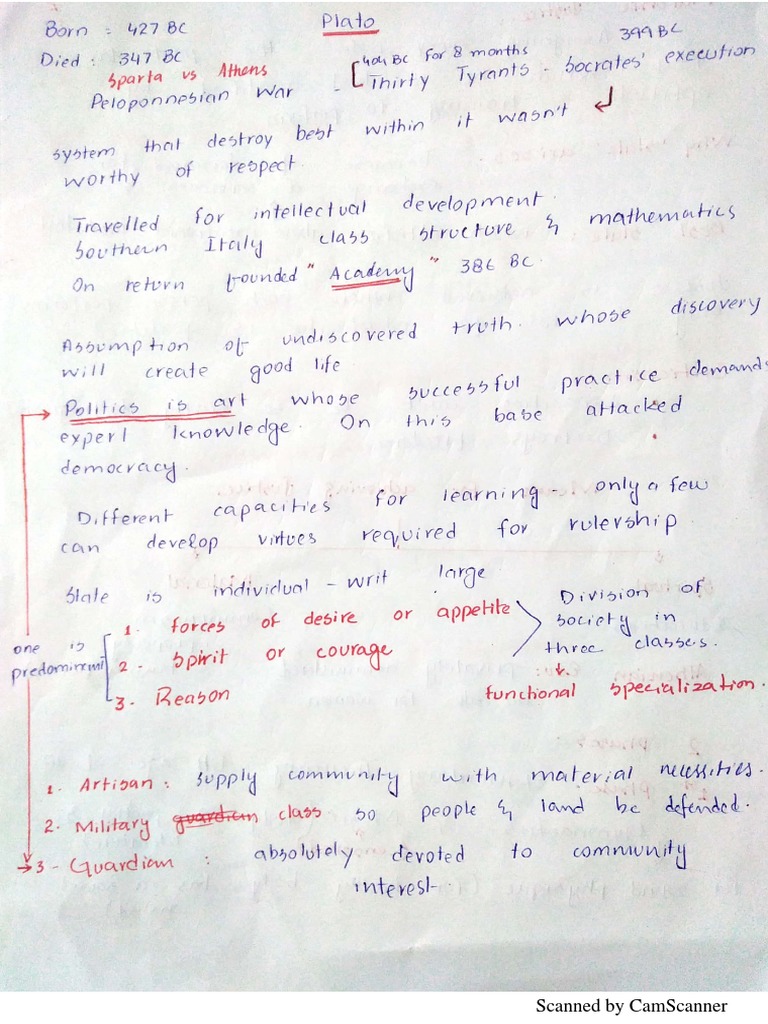 Plato
Born : 427 BC
Died : 347 BC
399 BC
404 BC for 8 months
Sparta vs Athens
Peloponnesian War - Thirty Tyrants - Socrates' execution
system that destroy best within it wasn't
worthy of respect.
Travelled for intellectual development.
Southern Italy class structure & mathematics
On return founded "Academy" 386 BC.
Assumption of undiscovered truth whose discovery
will create good life
Politics is art whose successful practice demands
expert knowledge. On this base attacked
democracy.
Different capacities for learning - only a few
can develop virtues required for rulership
State is individual - writ large
one is
predominent
1. forces of desire or appetite
2. Spirit or courage
3. Reason
Division of
society in
three classes.
functional specialization.
1. Artisan : supply community with material necessities.
2. Military guardian class so people & land be defended.
3 - Guardian : absolutely devoted to community
interest
Scanned by CamScanner